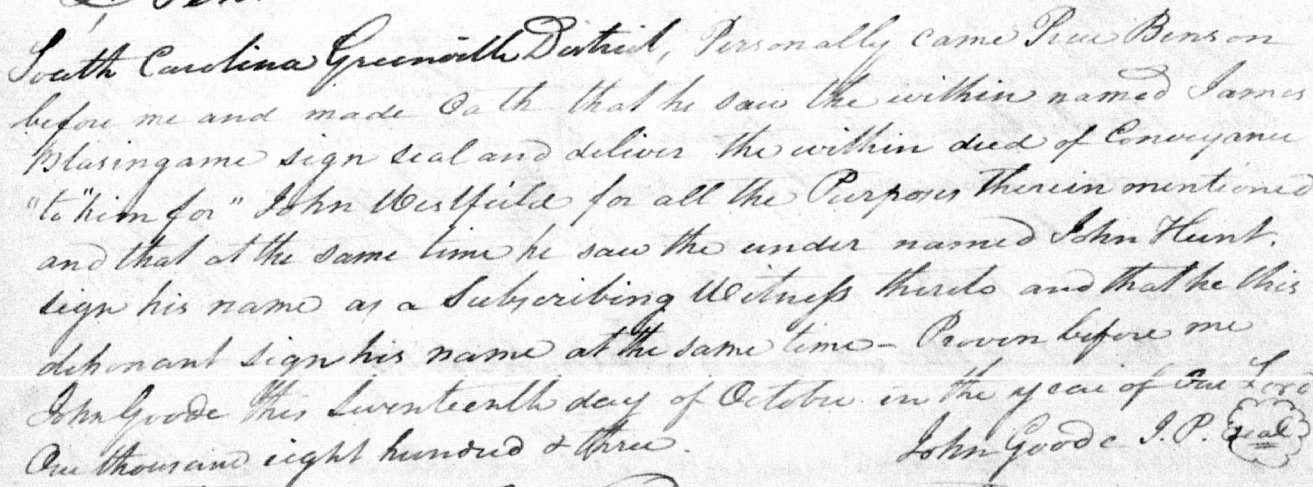 South Carolina Greenville District, Personally came Prue Benson
before me and made Oath that he saw the within named James
Blasingame sign seal and deliver the within deed of Conveyance
"to "him for" John Westfield for all the Purposes therein mentioned
and that at the same time he saw the under named John Hunt.
sign his name as a Subscribing Witness thereto and that he this
deponant sign his name at the same time - Proven before me
John Goode this Seventeenth day of October in the year of our Lord
One thousand eight hundred & three. John Goode J.P. Seal